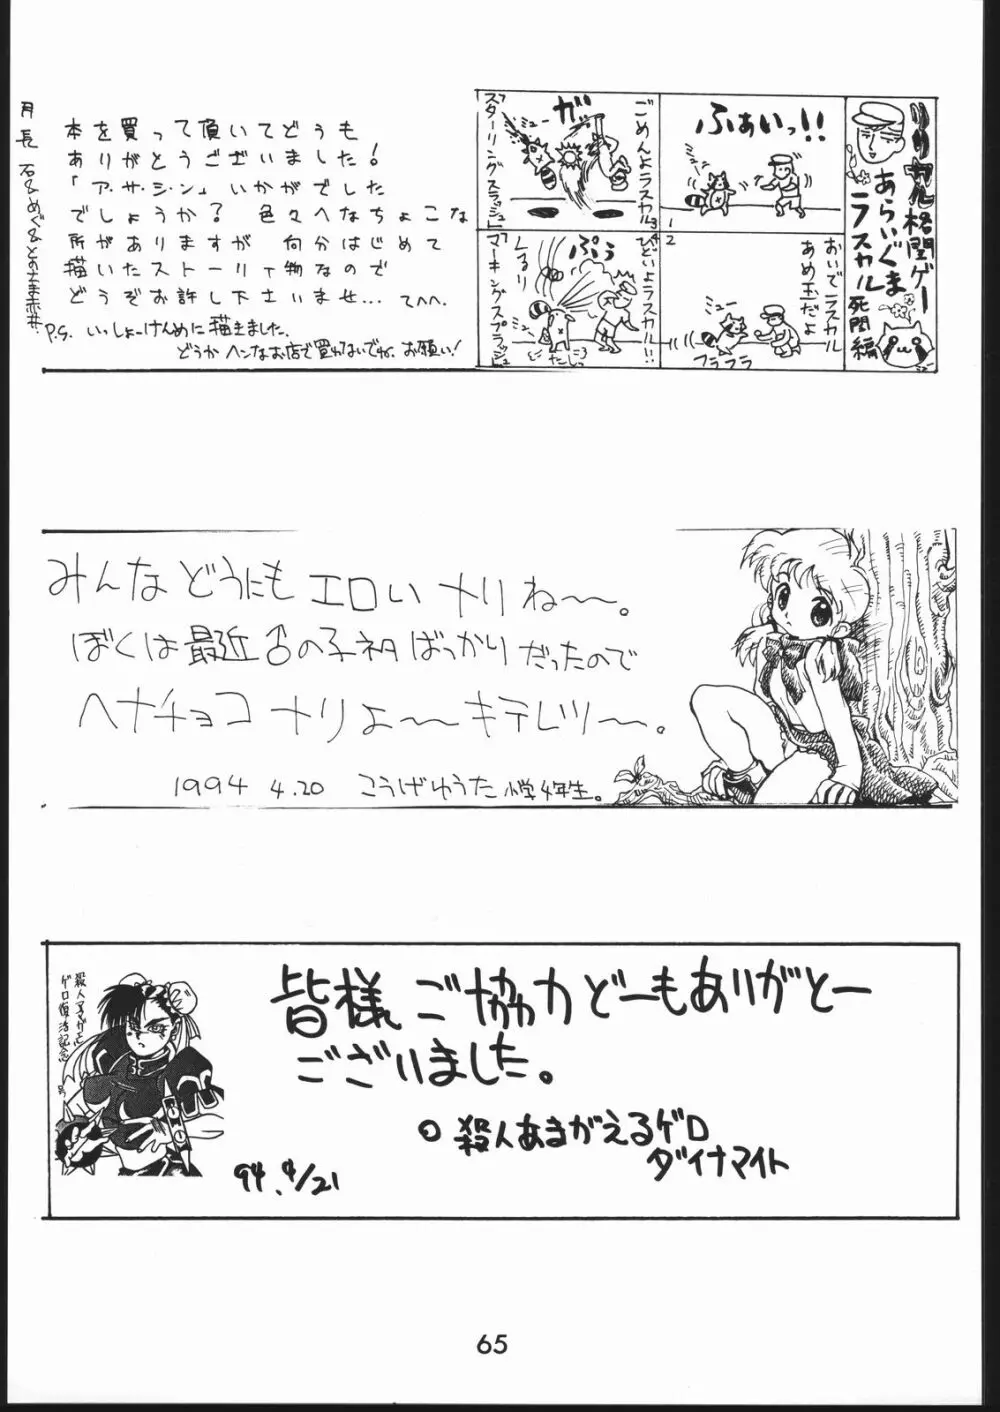 本を買って頂いてどうも
ありがとうございました!
「ア・サ・シ・ン」いかがでした
でしょうか? 色々へなちょこな
所がありますが 何分はじめて
描いたストーリィ物なので
どうぞお許し下さいませ… てへへ.
P.S. いっしょーけんめに描きました.
どうか ヘンなお店で買わないでね. お願い!
格闘ゲー
あらいぐま
ラスカル
死闘編
ふぁいっ!!
1
おいでラスカル
あめ玉だよ
ミュー
フラフラ
2
ごめんよラスカル
ガッ
スターリングスラッシュ
3
ひどいよラスカル!!
ぷぅ
ミュー
マーキングスプラッシュ
4
みんな どうにも エロい ナリね〜〜。
ぼくは 最近 ばっかり だったので
ヘナチョコ ナリよ〜〜 キテレツ〜〜。
1994 4.20 こうげゆうた 小学4年生。
殺人あまがえる
ゲロ復活記念
皆様 ご協力どーもありがとー
ございました。
殺人あまがえるゲロ
ダイナマイト
94. 4/21
65